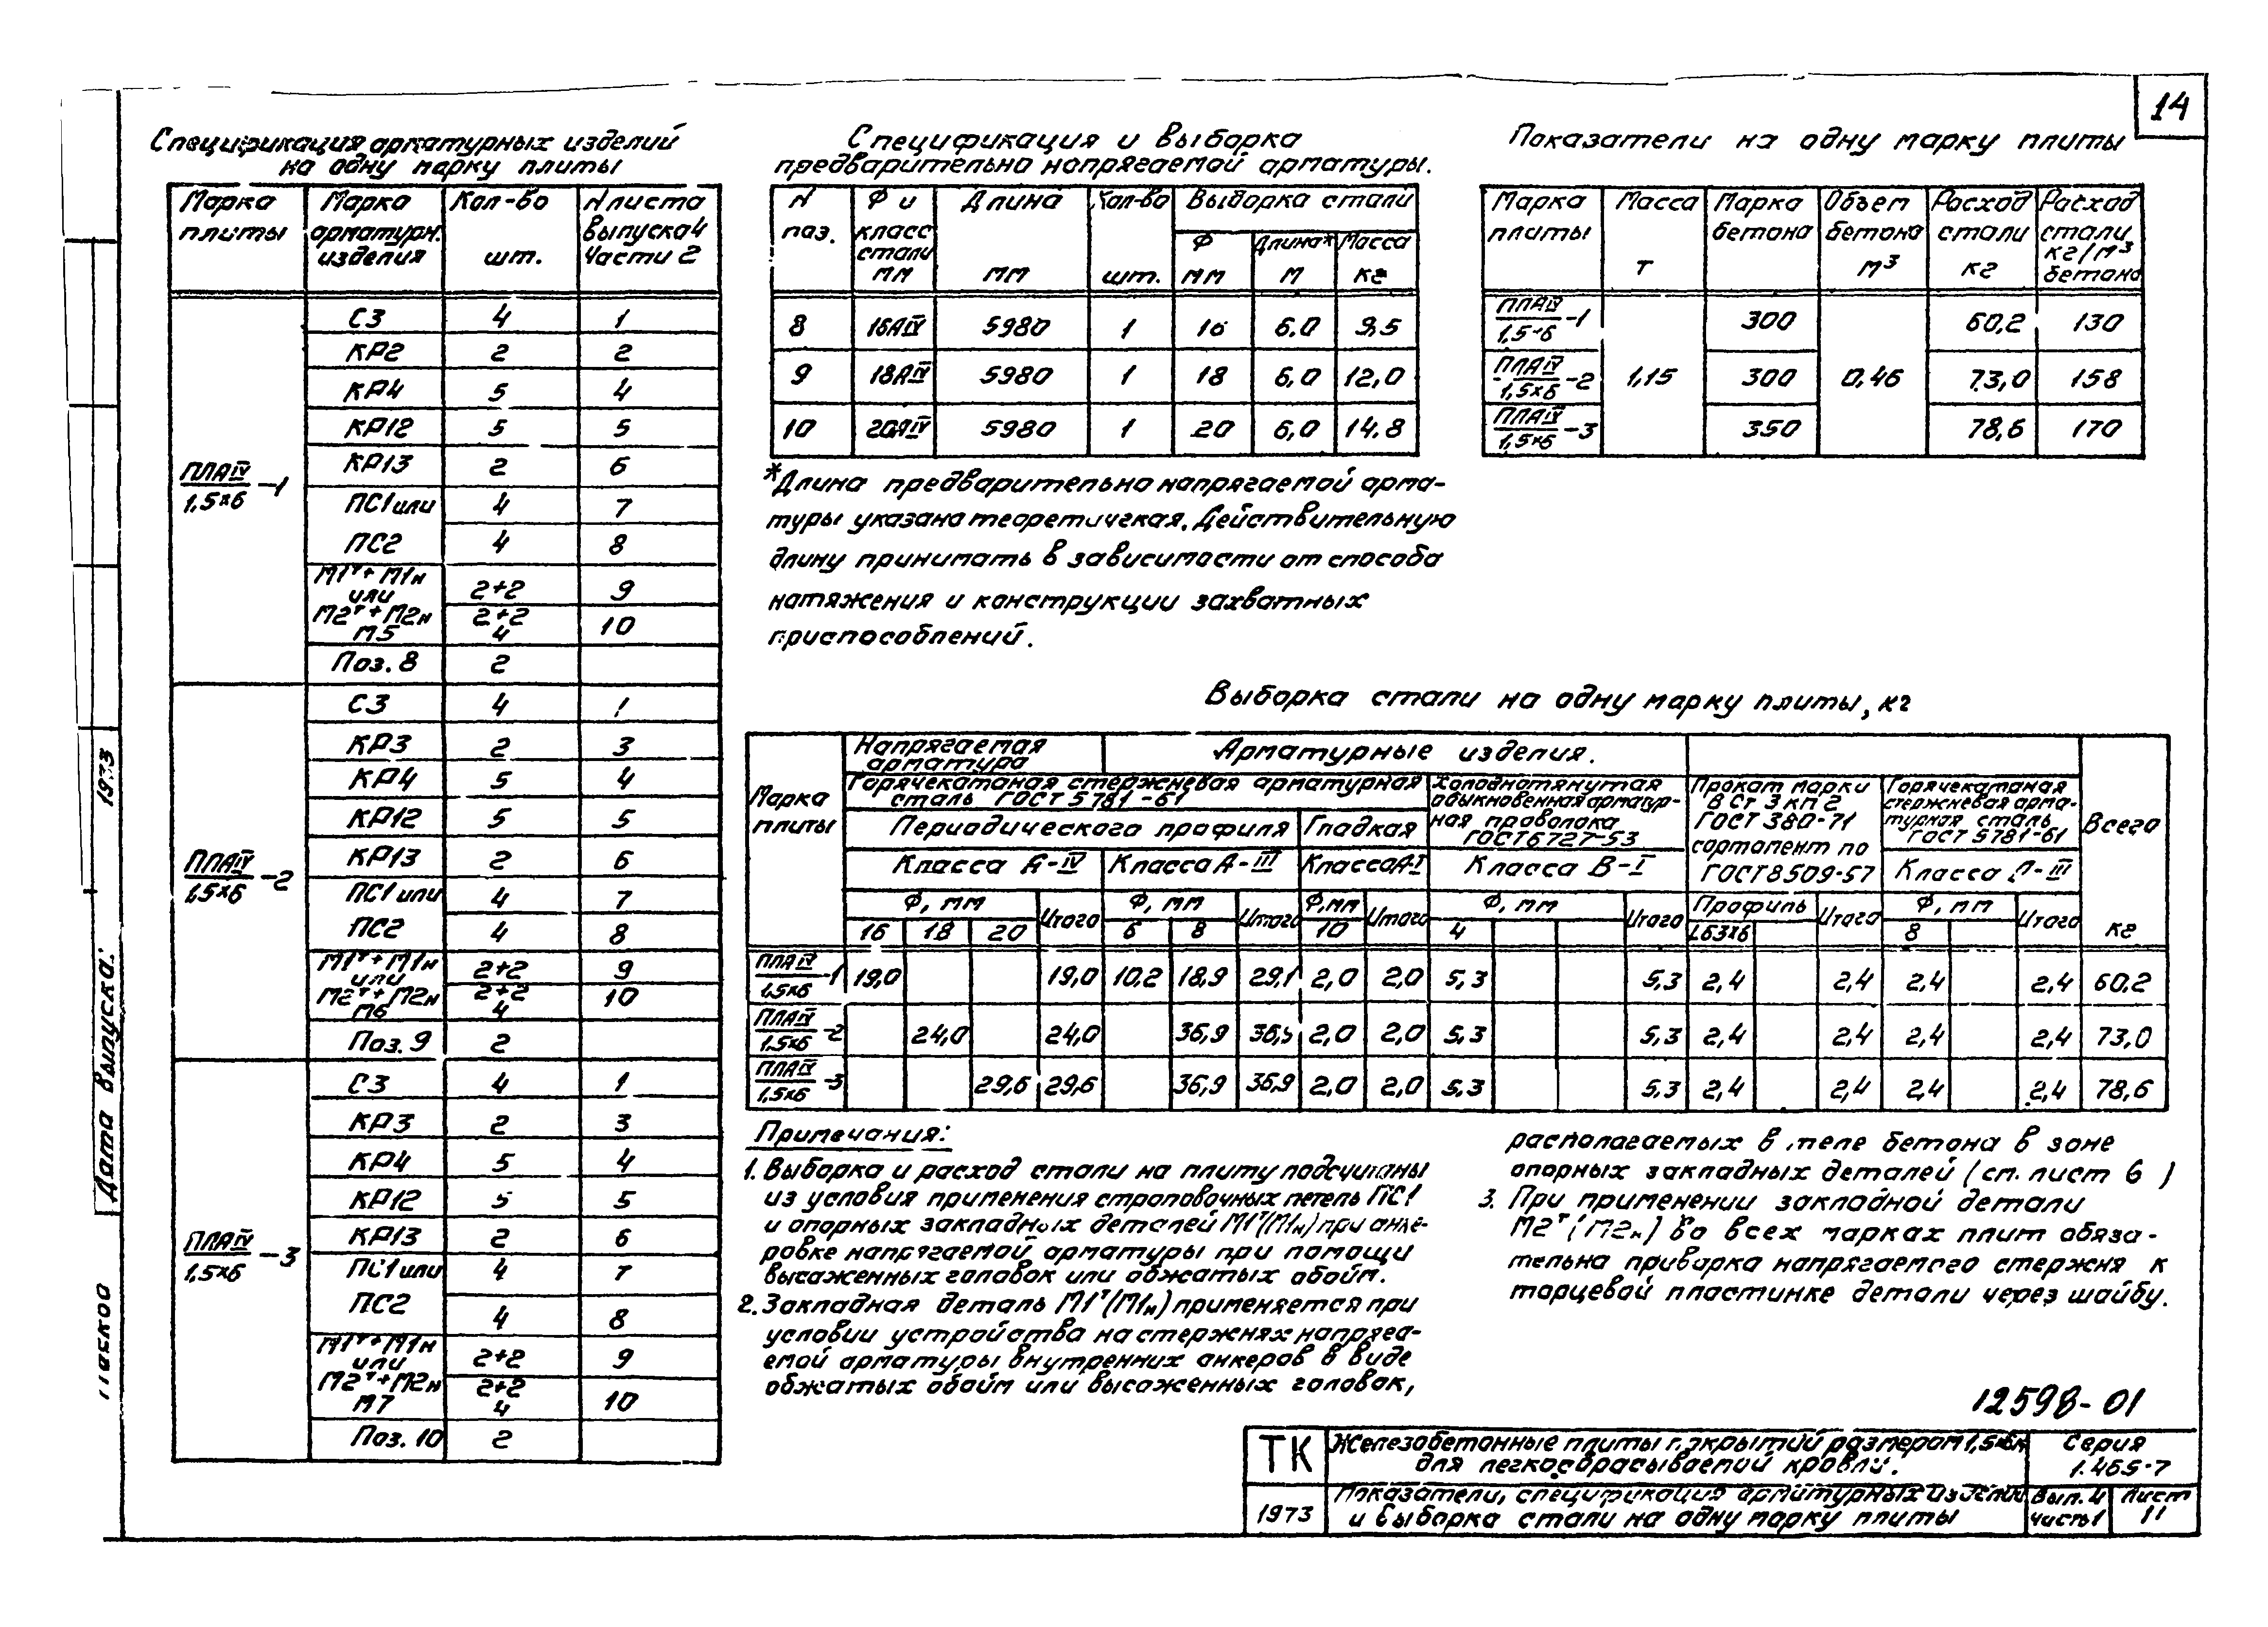 14
Спецификация арматурных изделий
на одну марку плиты
Марка плиты | Марка арматурн. изделия | Кол-во шт. | N листа выпуска 4 части 2
ПЛАIV/1,5×6 -1
С3 | 4 | 1
КР2 | 2 | 2
КР4 | 5 | 4
КР12 | 5 | 5
КР13 | 2 | 6
ПС1 или | 4 | 7
ПС2 | 4 | 8
М1т + М1н | 2+2 | 9
или
М2т + М2н | 2+2 | 10
М5 | 4
Поз. 8 | 2
ПЛАIV/1,5×6 -2
С3 | 4 | 1
КР3 | 2 | 3
КР4 | 5 | 4
КР12 | 5 | 5
КР13 | 2 | 6
ПС1 или | 4 | 7
ПС2 | 4 | 8
М1т + М1н | 2+2 | 9
или
М2т + М2н | 2+2 | 10
М6 | 4
Поз. 9 | 2
ПЛАIV/1,5×6 -3
С3 | 4 | 1
КР3 | 2 | 3
КР4 | 5 | 4
КР12 | 5 | 5
КР13 | 2 | 6
ПС1 или | 4 | 7
ПС2 | 4 | 8
М1т + М1н | 2+2 | 9
или
М2т + М2н | 2+2 | 10
М7 | 4
Поз. 10 | 2
Спецификация и выборка
предварительно напрягаемой арматуры.
N поз. | Ф и класс стали мм | Длина мм | Кол-во шт. | Выборка стали
Ф мм | Длина* м | Масса кг
8 | 16АIV | 5980 | 1 | 16 | 6.0 | 9,5
9 | 18АIV | 5980 | 1 | 18 | 6,0 | 12,0
10 | 20АIV | 5980 | 1 | 20 | 6,0 | 14.8
*Длина предварительно напрягаемой арма-
туры указана теоретическая. Действительную
длину принимать в зависимости от способа
натяжения и конструкции захватных
приспособлений.
Показатели на одну марку плиты
Марка плиты | Масса т | Марка бетона | Объем бетона м³ | Расход стали кг | Расход стали кг/м³ бетона
ПЛАIV/1,5×6 -1 | 1,15 | 300 | 0,46 | 60,2 | 130
ПЛАIV/1,5×6 -2 | 300 | 73,0 | 158
ПЛАIV/1,5×6 -3 | 350 | 78,6 | 170
Выборка стали на одну марку плиты, кг
Марка плиты | Напрягаемая арматура | Арматурные изделия. | Всего кг
Горячекатаная стержневая арматурная сталь ГОСТ 5781-61 | Холоднотянутая обыкновенная арматурная проволока ГОСТ 6727-53 | Прокат марки В Ст 3 кп 2 ГОСТ 380-71 сортамент по ГОСТ 8509-57 | Горячекатаная стержневая арматурная сталь ГОСТ 5781-61
Периодического профиля | Гладкая
Класса А-IV | Класса А-III | Класса АI | Класса В-I | Класса А-III
Ф, мм | Итого | Ф, мм | Итого | Ф,мм | Итого | Ф, мм | Итого | Профиль | Итого | Ф, мм | Итого
16 | 18 | 20 | 6 | 8 | 10 | 4 | L63×6 | 8
ПЛАIV/1,5×6 -1 | 19,0 | 19,0 | 10,2 | 18,9 | 29,1 | 2,0 | 2,0 | 5,3 | 5,3 | 2,4 | 2,4 | 2,4 | 2,4 | 60.2
ПЛАIV/1,5×6 -2 | 24,0 | 24,0 | 36,9 | 36,9 | 2,0 | 2,0 | 5,3 | 5,3 | 2,4 | 2,4 | 2,4 | 2,4 | 73,0
ПЛАIV/1,5×6 -3 | 29,6 | 29,6 | 36,9 | 36,9 | 2,0 | 2,0 | 5,3 | 5,3 | 2,4 | 2,4 | 2,4 | 2,4 | 78,6
Примечания:
1. Выборка и расход стали на плиту подсчитаны
из условия применения строповочных петель ПС1
и опорных закладных деталей М1т(М1н) при анке-
ровке напрягаемой арматуры при помощи
высаженных головок или обжатых обойм.
2. Закладная деталь М1т(М1н) применяется при
условии устройства на стержнях напряга-
емой арматуры внутренних анкеров в виде
обжатых обойм или высаженных головок,
располагаемых в теле бетона в зоне
опорных закладных деталей (см. лист 6 )
3. При применении закладной детали
М2т (М2н) во всех марках плит обяза-
тельна приварка напрягаемого стержня к
торцевой пластинке детали через шайбу.
12598-01
ТК | Железобетонные плиты покрытий размером 1,5×6м
для легкосбрасываемой кровли. | Серия 1.465-7
1973 | Показатели, спецификация арматурных изделий
и выборка стали на одну марку плиты | Вып. 4 часть 1 | Лист 11
Дата выпуска: 1973